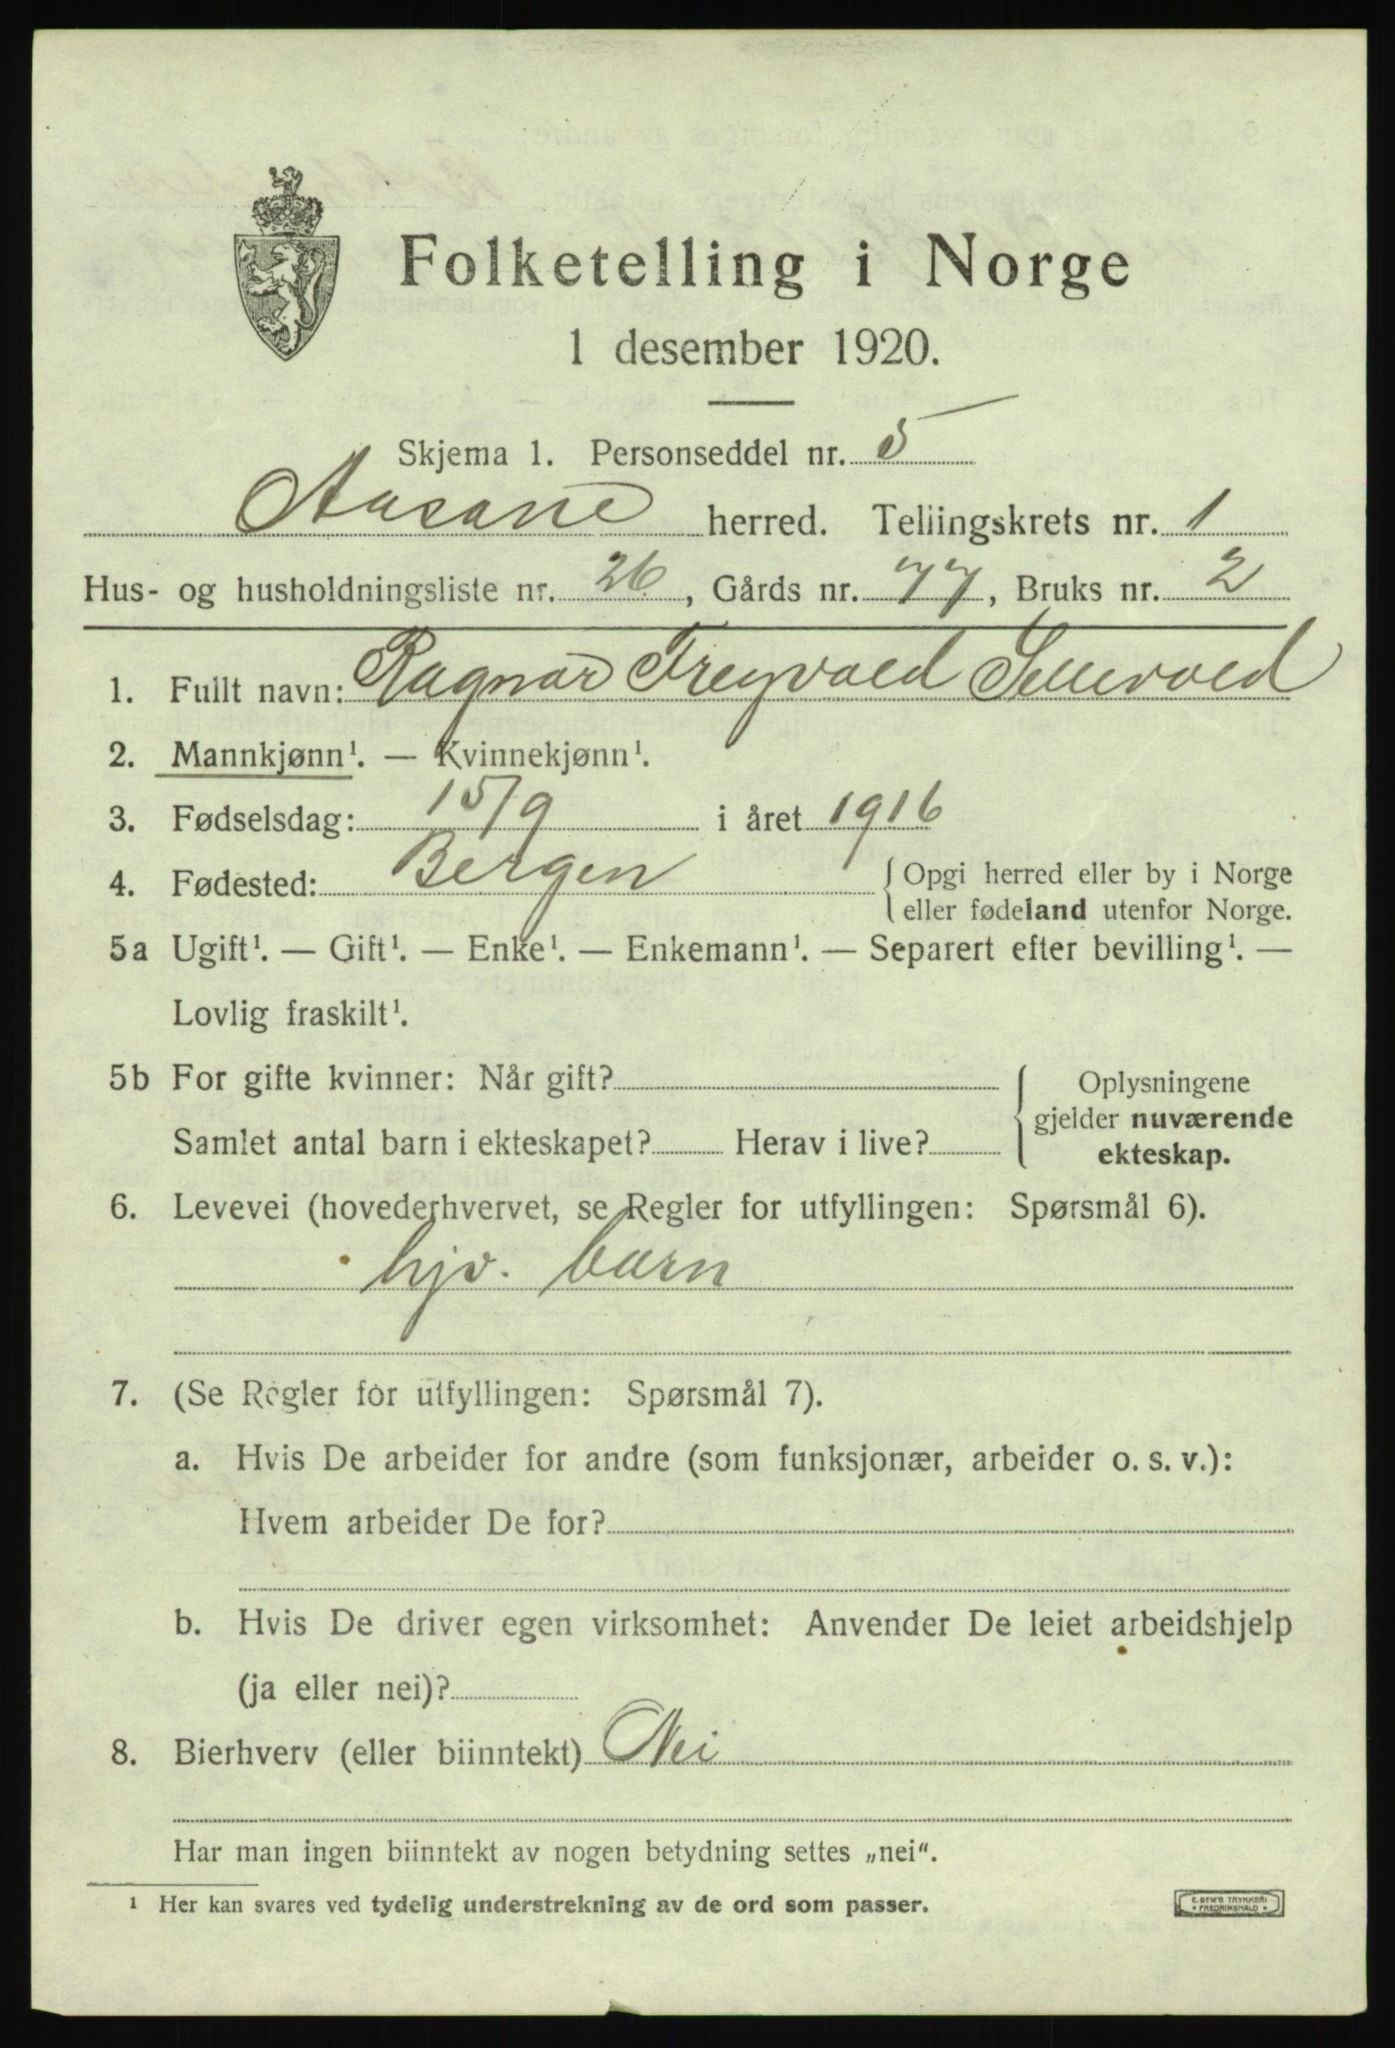 Folketelling i Norge
1 desember 1920.
Skjema 1. Personseddel nr. 5
Aasane herred. Tellingskrets nr. 1
Hus- og husholdningsliste nr. 26, Gårds nr. 77, Bruks nr. 2
1. Fullt navn: Ragnar Freyvald Sellevold
2. Mannkjønn¹. — Kvinnekjønn¹.
3. Fødselsdag: 15/9 i året 1916
4. Fødested: Bergen { Opgi herred eller by i Norge
eller fødeland utenfor Norge.
5a Ugift¹. — Gift¹. — Enke¹. — Enkemann¹. — Separert efter bevilling¹. —
Lovlig fraskilt¹.
5b For gifte kvinner: Når gift? { Oplysningene
gjelder nuværende
Samlet antal barn i ekteskapet? Herav i live? ekteskap.
6. Levevei (hovederhvervet, se Regler for utfyllingen: Spørsmål 6).
hjv. barn
7. (Se Regler for utfyllingen: Spørsmål 7).
a. Hvis De arbeider for andre (som funksjonær, arbeider o. s. v.):
Hvem arbeider De for?
b. Hvis De driver egen virksomhet: Anvender De leiet arbeidshjelp
(ja eller nei)?
8. Bierhverv (eller biinntekt) Nei
Har man ingen biinntekt av nogen betydning settes „nei".
¹ Her kan svares ved tydelig understrekning av de ord som passer.
E. SEM'S TRYKKERI
FREDRIKSHALD